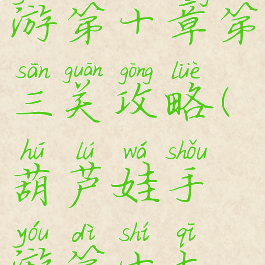 游第十章第
sān guān gōng lüè
三关攻略(
hú lú wá shǒu
葫芦娃手
yóu dì shí qī
游第十七